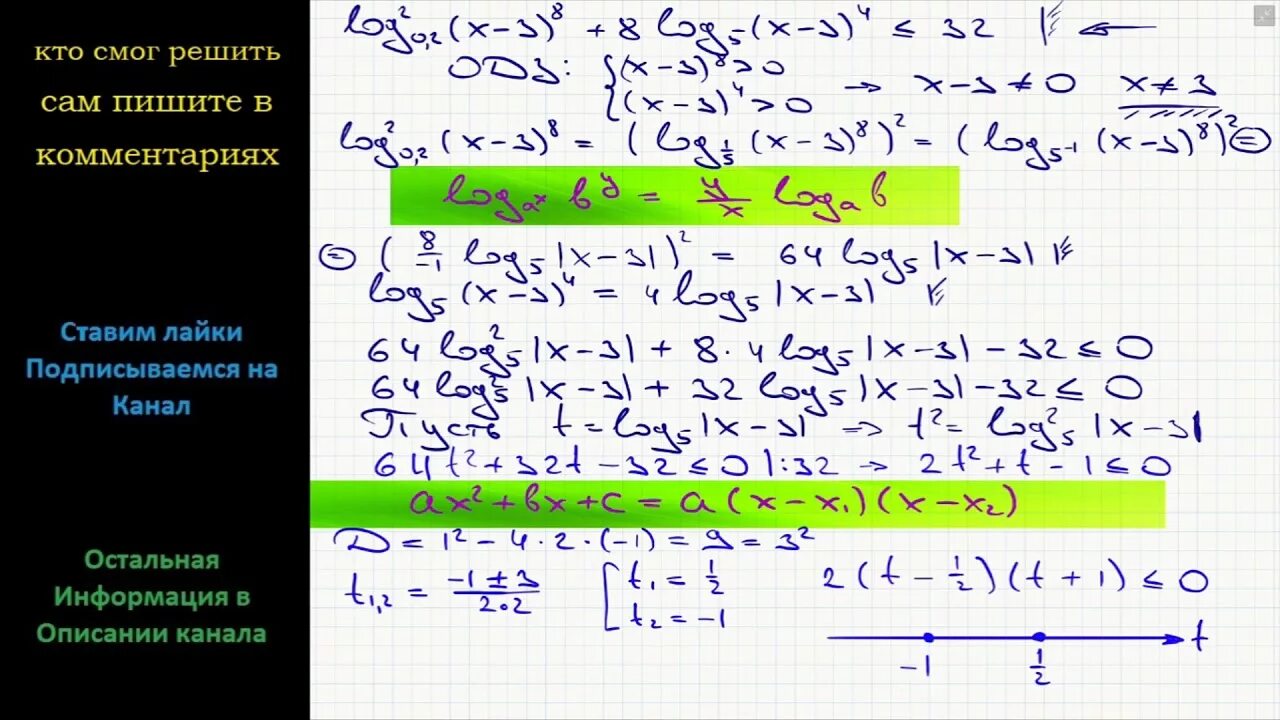 кто смог решить
сам пишите в
комментариях
Ставим лайки
Подписываемся на
Канал
Остальная
Информация в
Описании канала
log²₀,₂(x-3)⁸ + 8 log₅(x-3)⁴ ≤ 32
ОДЗ: { (x-3)⁸ > 0
(x-3)⁴ > 0 → x-3 ≠ 0 x ≠ 3
log²₀,₂(x-3)⁸ = (log_{1/5}(x-3)⁸)² = (log_{5⁻¹}(x-3)⁸)² =
log_{aˣ} bʸ = y/x logₐ b
= (8/-1 log₅|x-3|)² = 64 log₅|x-3|
log₅(x-3)⁴ = 4 log₅|x-3|
64 log²₅|x-3| + 8·4 log₅|x-3| - 32 ≤ 0
64 log²₅|x-3| + 32 log₅|x-3| - 32 ≤ 0
Пусть t = log₅|x-3| ⇒ t² = log²₅|x-3|
64t² + 32t - 32 ≤ 0 |:32 → 2t² + t - 1 ≤ 0
ax² + bx + c = a(x-x₁)(x-x₂)
D = 1² - 4·2·(-1) = 9 = 3²
t₁,₂ = (-1±3)/(2·2) [ t₁ = 1/2
t₂ = -1
2(t - 1/2)(t + 1) ≤ 0
t
-1 1/2